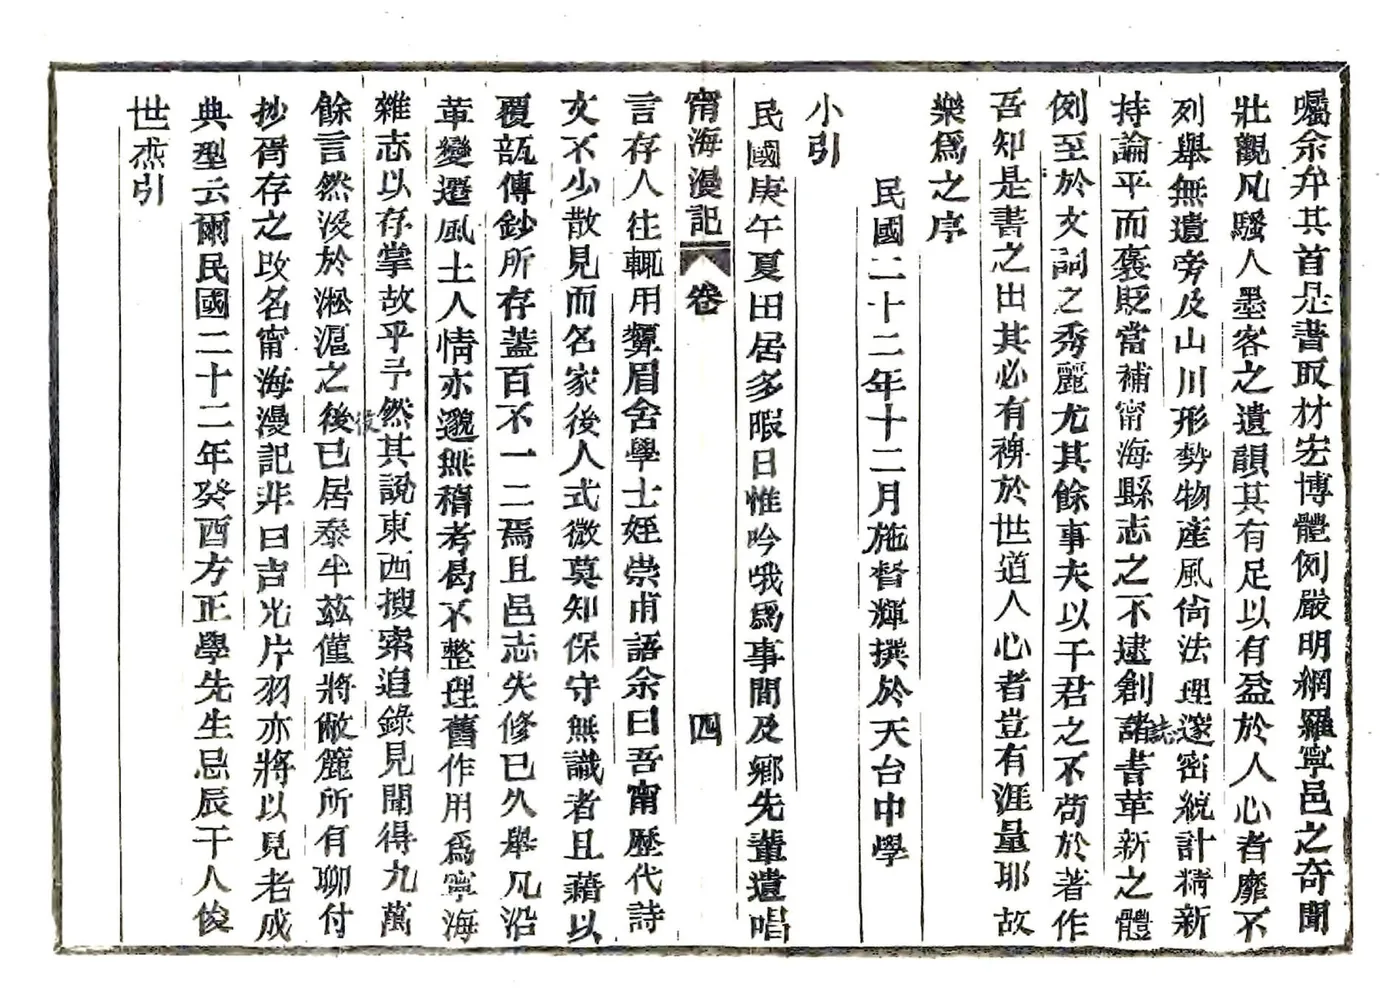 囑余弁其首是書取材宏博體例嚴明網羅寧邑之奇聞
壯觀凡騷人墨客之遺韻其有足以有益於人心者靡不
列舉無遺旁及山川形勢物產風尙法理邃密統計精新
持論平而褒貶當補甯海縣志之不逮創諸書革新之體
誌
例至於文詞之秀麗尤其餘事夫以干君之不苟於著作
吾知是書之出其必有裨於世道人心者豈有涯量耶故
樂爲之序
民國二十二年十二月施督輝撰於天台中學
小引
民國庚午夏田居多暇日惟吟哦爲事間及鄉先輩遺唱
甯海漫記 卷 四
言存人往輒用顰眉舍學士姪崇甫語余曰吾甯歷代詩
文不少散見而名家後人式微莫知保守無識者且藉以
覆瓿傳鈔所存蓋百不一二焉且邑志失修已久舉凡沿
革變遷風土人情亦邈無稽考曷不整理舊作用爲寧海
雜志以存掌故乎予然其說東西搜索追錄見聞得九萬
餘言然沒於淞滬之後已居泰半茲僅將敝簏所有聊付
役
抄胥存之改名甯海漫記非曰吉光片羽亦將以見老成
典型云爾民國二十二年癸酉方正學先生忌辰干人俊
世杰引